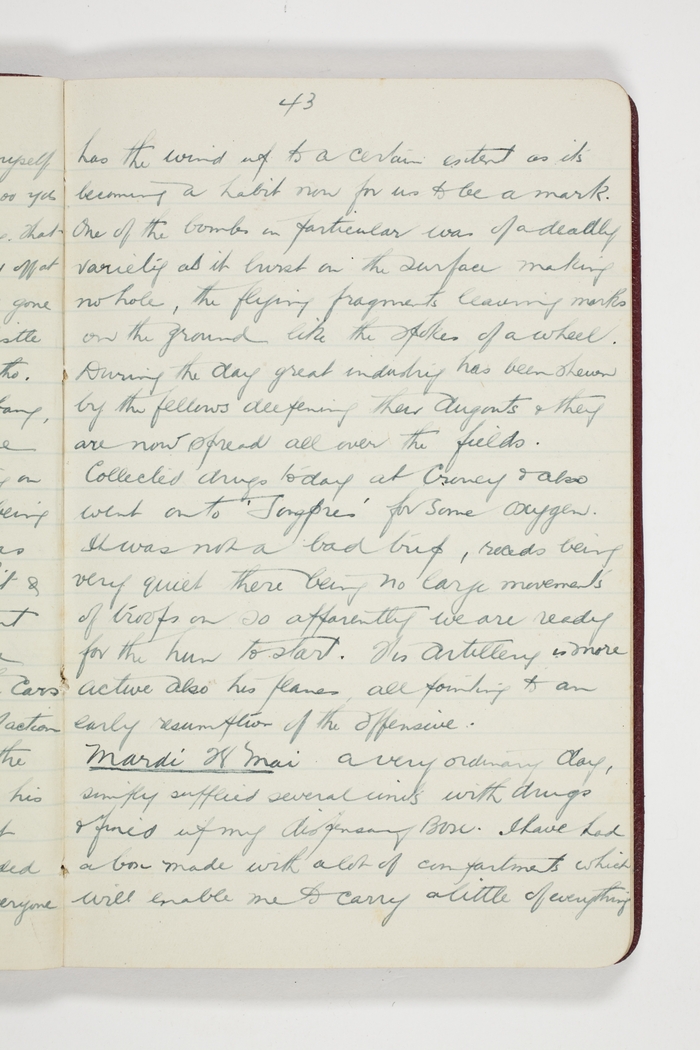 43
has the wind up to a certain extent as its
becoming a habit now for us to be a mark.
One of the bombs in particular was of a deadly
variety as it burst on the surface making
no hole, the flying fragments leaving marks
on the ground like the spokes of a wheel.
During the day great industry has been shewn
by the fellows deepening their dugouts & they
are now spread all over the fields.
Collected drugs today at Crouey & also
went on to 'Longpres' for some oxygen.
It was not a bad trip, roads being
very quiet there being no large movements
of troops on so apparently we are ready
for the hun to start. His artillery is more
active also his planes, all pointing to an
early resumption of the offensive.
Mardi 28 Mai a very ordinary day,
simply supplied several units with drugs
& fixed up my dispensary Box. I have had
a box made with a lot of compartments which
will enable me to carry a little of everything
myself
yds
that
off at
gone
tho.
being
&
Cars
action
the
his
everyone